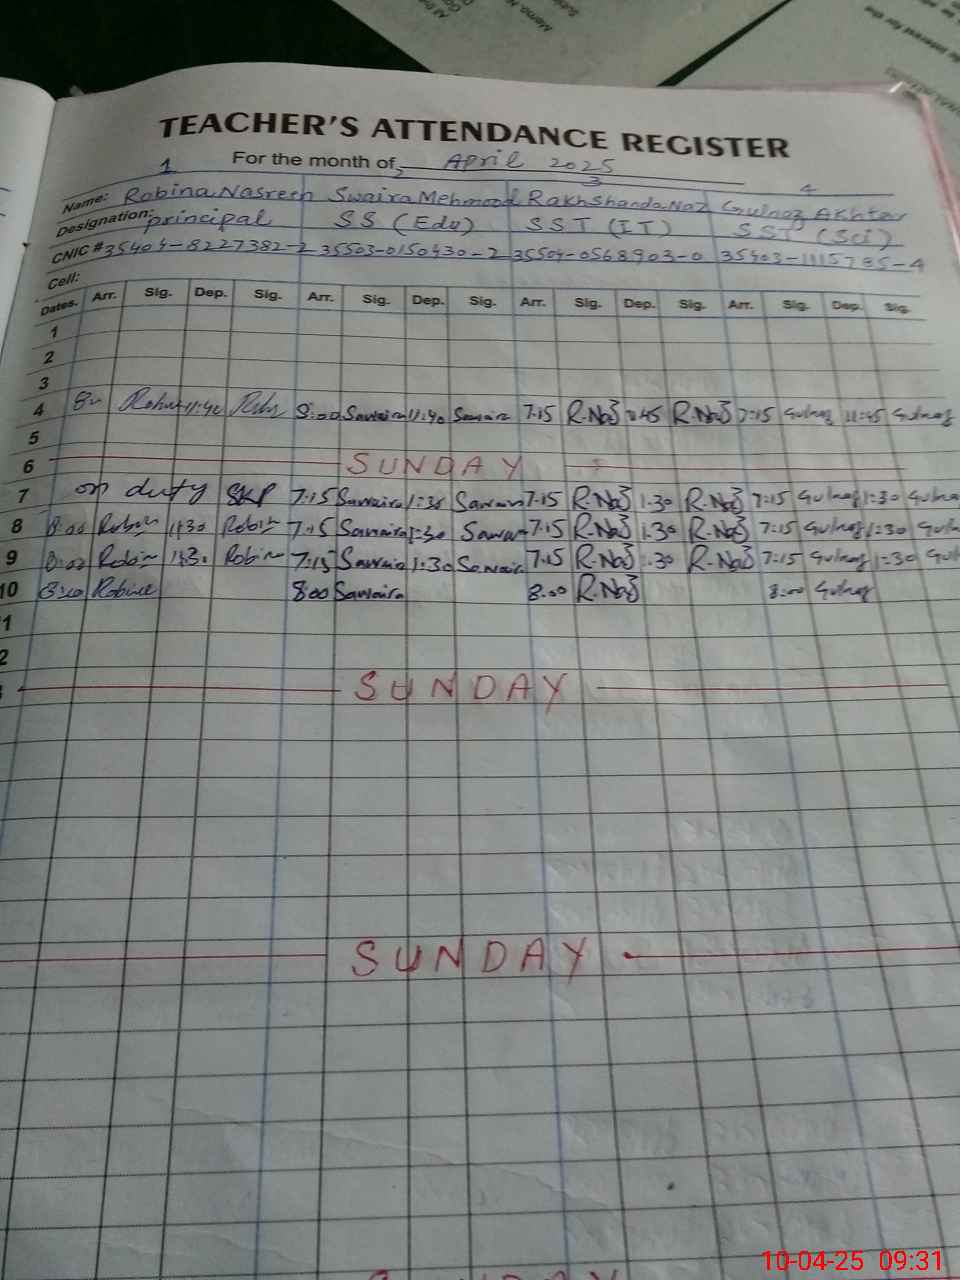 TEACHER'S ATTENDANCE REGISTER
For the month of April 2025
1 2 3 4
Name: Robina Nasreen Swaira Mehmood Rakhshanda Naz Gulnaz Akhtar
Designation: principal SS (Edu) SST (IT) SST (Sci)
CNIC # 35404-8227382-2 35503-0150430-2 35504-0568903-0 35403-1115785-4
Cell:
Dates. Arr. Sig. Dep. Sig. Arr. Sig. Dep. Sig. Arr. Sig. Dep. Sig. Arr. Sig. Dep. Sig.
1
2
3
4 11:40 8:00 Sawaira 11:40 Sawaira 7:15 R.Naz 11:45 R.Naz 7:15 Gulnaz 11:45 Gulnaz
5
6 SUNDAY
7 on duty SKP 7:15 Sawaira 1:30 Sawaira 7.15 R.Naz 1.30 R.Naz 7:15 Gulnaz 1:30 Gulna
8 8:00 Robin 1:30 Robin 7:15 Sawaira 1:30 Sawair 7.15 R.Naz 1.30 R.Naz 7:15 Gulnaz 1:30 Guln
9 8:00 Robin 1:30 Robin 7:15 Sawaira 1:30 Sawaira 7.15 R.Naz 1.30 R.Naz 7:15 Gulnaz 1:30 Gul
10 8:00 Robine 8:00 Sawaira 8.00 R.Naz 8:00 Gulnaz
1
2
SUNDAY
SUNDAY
10-04-25 09:31